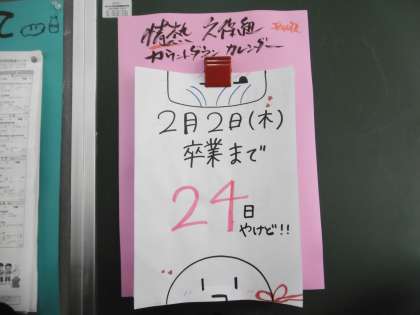 情熱 久保組
カウントダウン カレンダー
2月2日(木)
卒業まで
24日
やけど!!